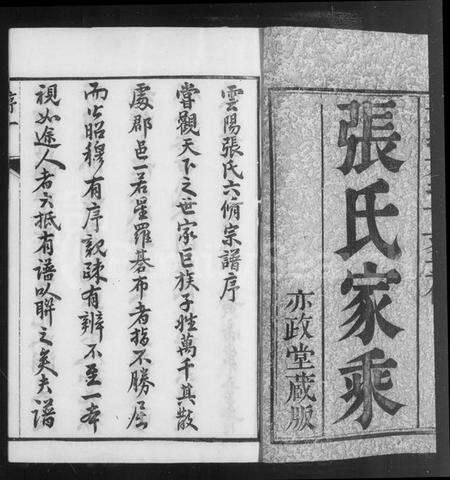 張氏家乘
亦政堂藏版
雲陽張氏六脩宗譜序
嘗觀天下之世家巨族子姓萬千其散
處郡邑一若星羅碁布者指不勝屈
而必昭穆有序親疎有辨不至一本
視如途人者亦抵有譜以聯之矣夫譜
序一